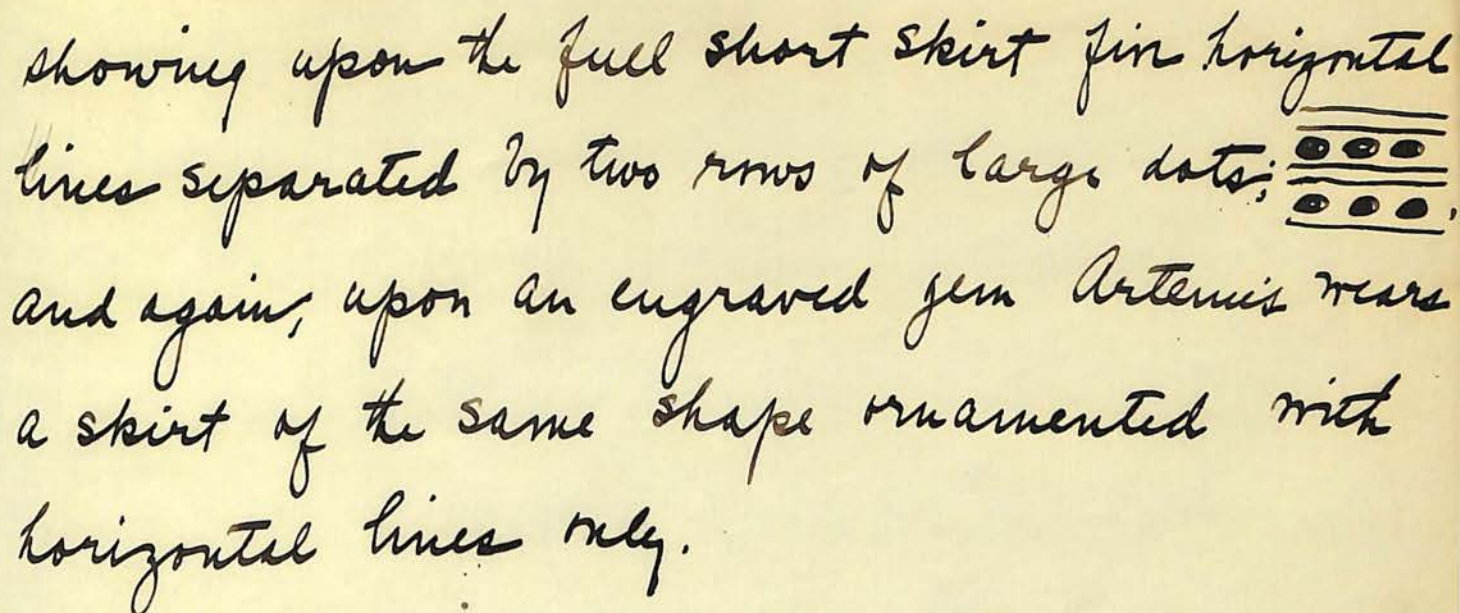 showing upon the full short skirt five horizontal
lines separated by two rows of large dots;
and again, upon an engraved gem Artemis wears
a skirt of the same shape ornamented with
horizontal lines only.